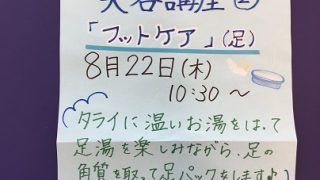 講座②
「フットケア」(足)
8月22日(木)
10:30～
タライに温いお湯をはって
足湯を楽しみながら、足の
角質を取って足パックをします♪